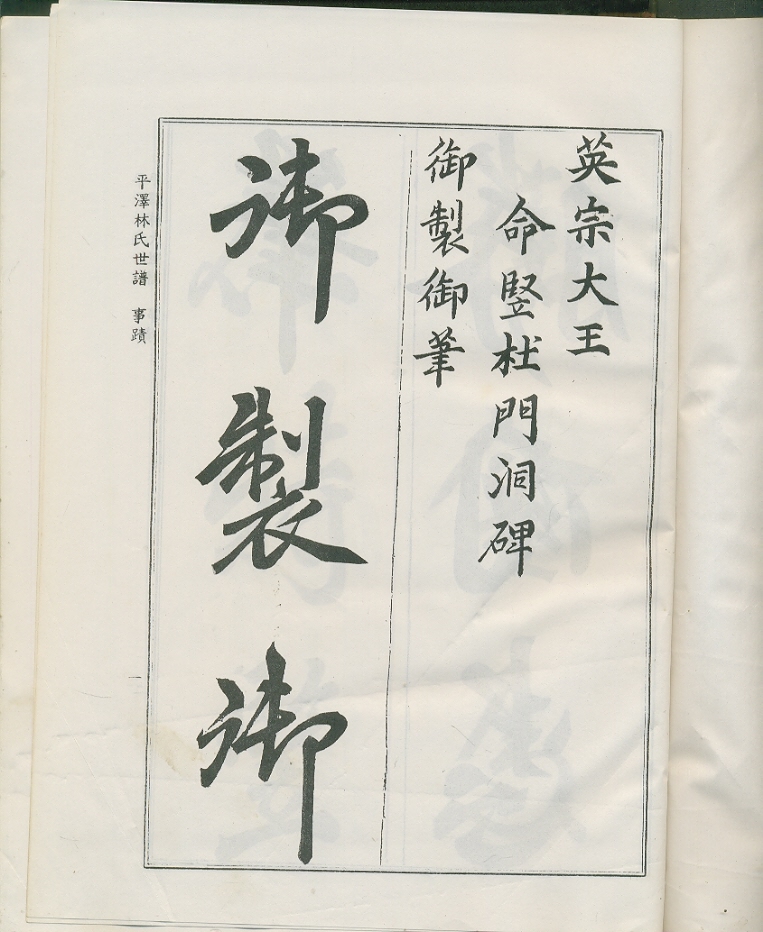 英宗大王
命竪杜門洞碑
御製御筆
御製御
平澤林氏世譜 事蹟
一